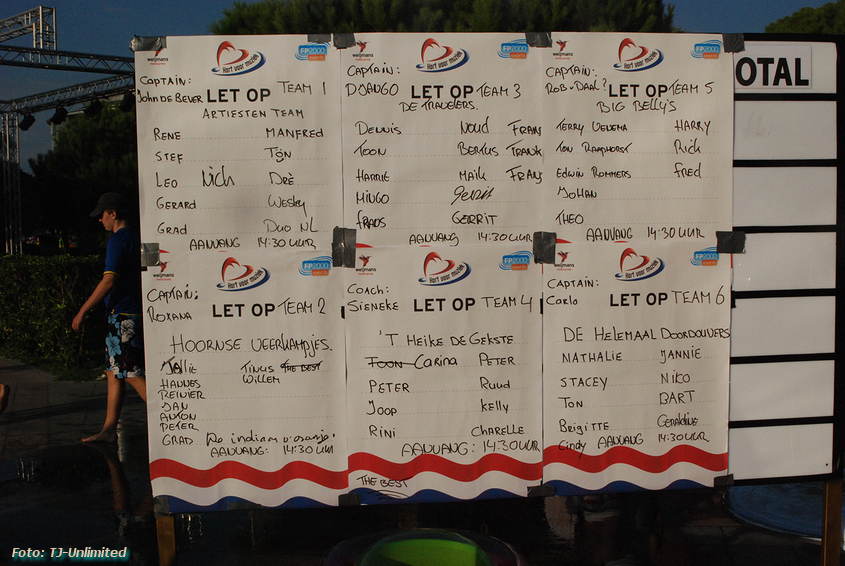 weijmans
Hart voor muziek
FP2000
CAPTAIN:
JOHN DE BEVER
LET OP TEAM 1
ARTIESTEN TEAM
RENE MANFRED
STEF TÖN
LEO NICH DRÈ
GERARD WESLEY
GRAD DUO NL
AANVANG 14:30 UUR
weijmans
Hart voor muziek
FP2000
CAPTAIN:
DJANGO
LET OP TEAM 3
DE TRAVELERS.
DENNIS NOUD FRAN
TOON BERTUS FRANK
HARRIE MAIK FRANS
MINGO GERRIT
FRADS GERRIT
AANVANG 14:30 UUR
weijmans
Hart voor muziek
FP2000
CAPTAIN:
ROB V. DAAL?
LET OP TEAM 5
BIG BELLY'S
TERRY VELEMA HARRY
TON RAAPHORST RICK
EDWIN ROMMERS FRED
JOHAN
THEO
AANVANG 14:30 UUR
OTAL
weijmans
Hart voor muziek
FP2000
CAPTAIN:
ROXANA
LET OP TEAM 2
HOORNSE VEERKAMPJES.
JALLIE TINUS THE BEST
HANNES WILLEM
REINIER
JAN
ANTON
PETER
GRAD De indiaan v. oranje!
AANVANG: 14:30 UUR
weijmans
Hart voor muziek
FP2000
COACH:
SIENEKE
LET OP TEAM 4
'T HEIKE DE GEKSTE
TOON CARINA PETER
PETER RUUD
JOOP KELLY
RINI CHARELLE
AANVANG: 14:30 UUR
THE BEST
weijmans
Hart voor muziek
FP2000
CAPTAIN:
CARLO
LET OP TEAM 6
DE HELEMAAL DOORDOUWERS
NATHALIE JANNIE
STACEY NIKO
TON BART
BRIGITTE GERALDINE
CINDY AANVANG 14:30 UUR
Foto: TJ-Unlimited